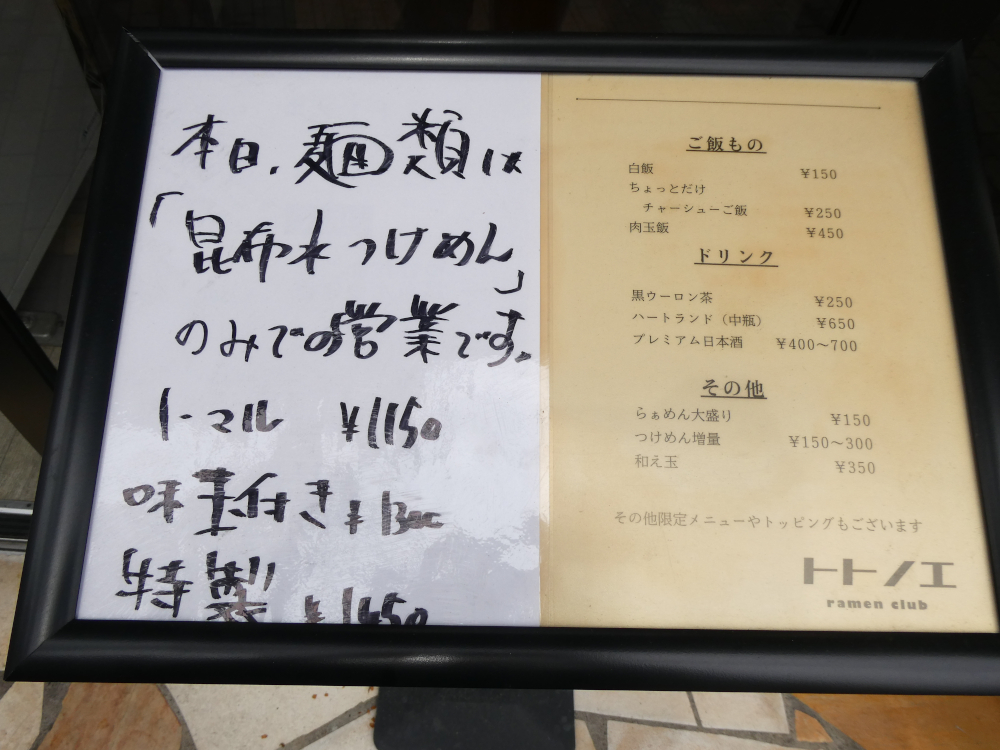 本日、麺類は
「昆布水つけめん」
のみでの営業です。
ノーマル ¥1150
味玉付き ¥1300
特製 ¥1450
ご飯もの
白飯 ¥150
ちょっとだけ
チャーシューご飯 ¥250
肉玉飯 ¥450
ドリンク
黒ウーロン茶 ¥250
ハートランド（中瓶） ¥650
プレミアム日本酒 ¥400〜700
その他
らぁめん大盛り ¥150
つけめん増量 ¥150〜300
和え玉 ¥350
その他限定メニューやトッピングもございます
トトノエ
ramen club